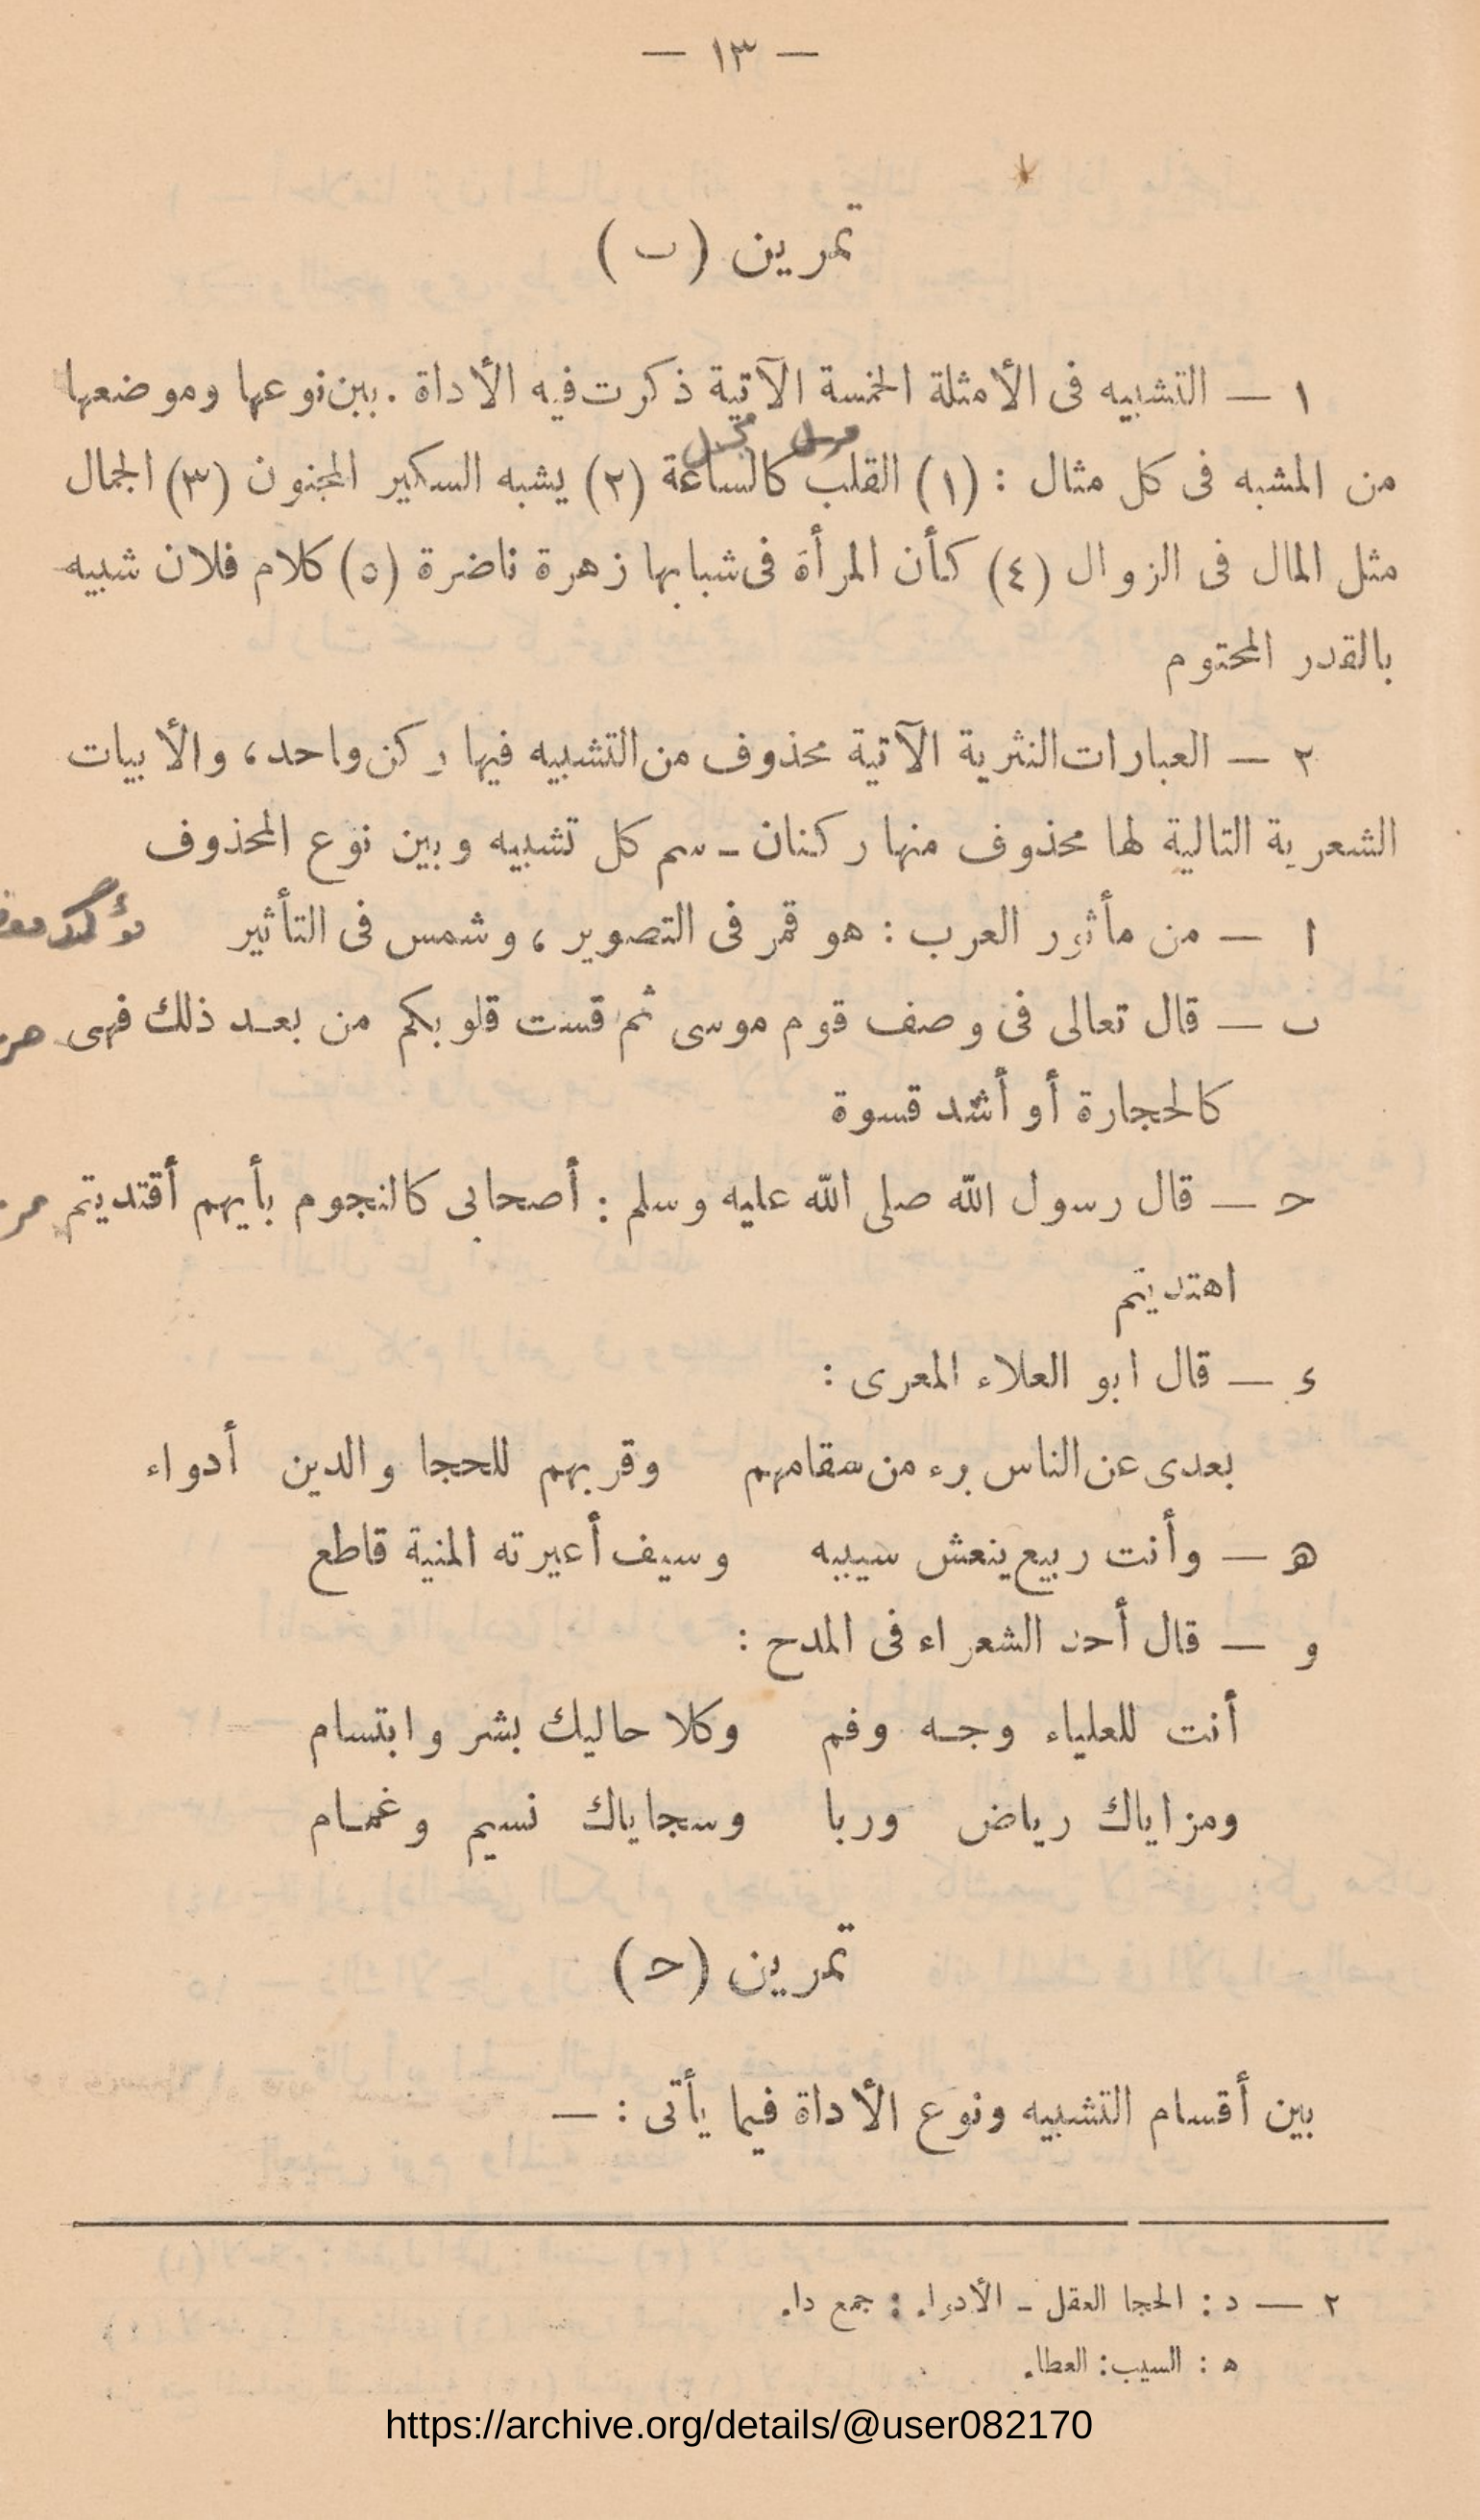 — ١٣ —
تمرين (ب)
١ — التشبيه فى الأمثلة الخمسة الآتية ذكرت فيه الأداة . بين نوعها وموضعها
مرسل مجمل
من المشبه فى كل مثال : (١) القلب كالساعة (٢) يشبه السكير المجنون (٣) الجمال
مثل المال فى الزوال (٤) كأن المرأة فى شبابها زهرة ناضرة (٥) كلام فلان شبيه
بالقدر المحتوم
٢ — العبارات النثرية الآتية محذوف من التشبيه فيها ركن واحد، والأبيات
الشعرية التالية لها محذوف منها ركنان ـ سم كل تشبيه وبين نوع المحذوف
ا — من مأثور العرب : هو قمر فى التصوير ، وشمس فى التأثير مؤكد
ب — قال تعالى فى وصف قوم موسى ثم قست قلوبكم من بعد ذلك فهى
كالحجارة أو أشد قسوة
ح — قال رسول الله صلى الله عليه وسلم : أصحابى كالنجوم بأيهم أقتديتم
اهتديتم
ء — قال ابو العلاء المعرى :
بعدى عن الناس برء من سقامهم وقربهم للحجا والدين أدواء
ه — وأنت ربيع ينعش سيبه وسيف أعيرته المنية قاطع
و — قال أحد الشعراء فى المدح :
أنت للعلياء وجه وفم وكلا حاليك بشر وابتسام
ومزاياك رياض وربا وسجاياك نسيم وغمام
تمرين (ح)
بين أقسام التشبيه ونوع الأداة فيما يأتى : —
٢ — د : الحجا العقل ـ الأدواء : جمع داء
ه : السيب : العطاء
https://archive.org/details/@user082170